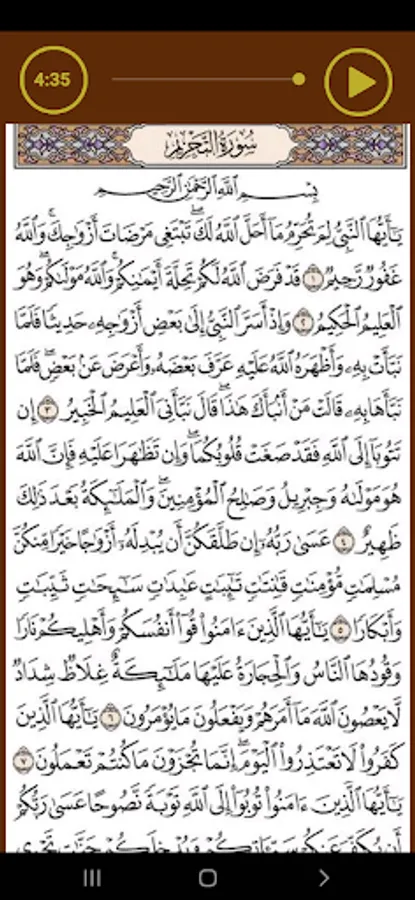 4:35
سُورَةُ التَّحْرِيمِ
بِسْمِ اللَّهِ الرَّحْمَٰنِ الرَّحِيمِ
يَٰٓأَيُّهَا النَّبِيُّ لِمَ تُحَرِّمُ مَآ أَحَلَّ اللَّهُ لَكَۖ تَبْتَغِي مَرْضَاتَ أَزْوَٰجِكَۚ وَاللَّهُ
غَفُورٌ رَّحِيمٌ ١ قَدْ فَرَضَ اللَّهُ لَكُمْ تَحِلَّةَ أَيْمَٰنِكُمْۚ وَاللَّهُ مَوْلَىٰكُمْۖ وَهُوَ
الْعَلِيمُ الْحَكِيمُ ٢ وَإِذْ أَسَرَّ النَّبِيُّ إِلَىٰ بَعْضِ أَزْوَٰجِهِۦ حَدِيثًا فَلَمَّا
نَبَّأَتْ بِهِۦ وَأَظْهَرَهُ اللَّهُ عَلَيْهِ عَرَّفَ بَعْضَهُۥ وَأَعْرَضَ عَنۢ بَعْضٍۖ فَلَمَّا
نَبَّأَهَا بِهِۦ قَالَتْ مَنْ أَنۢبَأَكَ هَٰذَاۖ قَالَ نَبَّأَنِيَ الْعَلِيمُ الْخَبِيرُ ٣ إِن
تَتُوبَآ إِلَى اللَّهِ فَقَدْ صَغَتْ قُلُوبُكُمَاۖ وَإِن تَظَٰهَرَا عَلَيْهِ فَإِنَّ اللَّهَ
هُوَ مَوْلَىٰهُ وَجِبْرِيلُ وَصَٰلِحُ الْمُؤْمِنِينَۖ وَالْمَلَٰٓئِكَةُ بَعْدَ ذَٰلِكَ
ظَهِيرٌ ٤ عَسَىٰ رَبُّهُۥٓ إِن طَلَّقَكُنَّ أَن يُبْدِلَهُۥٓ أَزْوَٰجًا خَيْرًا مِّنكُنَّ
مُسْلِمَٰتٍ مُّؤْمِنَٰتٍ قَٰنِتَٰتٍ تَٰٓئِبَٰتٍ عَٰبِدَٰتٍ سَٰٓئِحَٰتٍ ثَيِّبَٰتٍ
وَأَبْكَارًا ٥ يَٰٓأَيُّهَا الَّذِينَ ءَامَنُوا۟ قُوٓا۟ أَنفُسَكُمْ وَأَهْلِيكُمْ نَارًا
وَقُودُهَا النَّاسُ وَالْحِجَارَةُ عَلَيْهَا مَلَٰٓئِكَةٌ غِلَاظٌ شِدَادٌ
لَّا يَعْصُونَ اللَّهَ مَآ أَمَرَهُمْ وَيَفْعَلُونَ مَا يُؤْمَرُونَ ٦ يَٰٓأَيُّهَا الَّذِينَ
كَفَرُوا۟ لَا تَعْتَذِرُوا۟ الْيَوْمَۖ إِنَّمَا تُجْزَوْنَ مَا كُنتُمْ تَعْمَلُونَ ٧
يَٰٓأَيُّهَا الَّذِينَ ءَامَنُوا۟ تُوبُوٓا۟ إِلَى اللَّهِ تَوْبَةً نَّصُوحًا عَسَىٰ رَبُّكُمْ
أَن يُكَفِّرَ عَنكُمْ سَيِّـَٔاتِكُمْ وَيُدْخِلَكُمْ جَنَّٰتٍ تَجْرِي